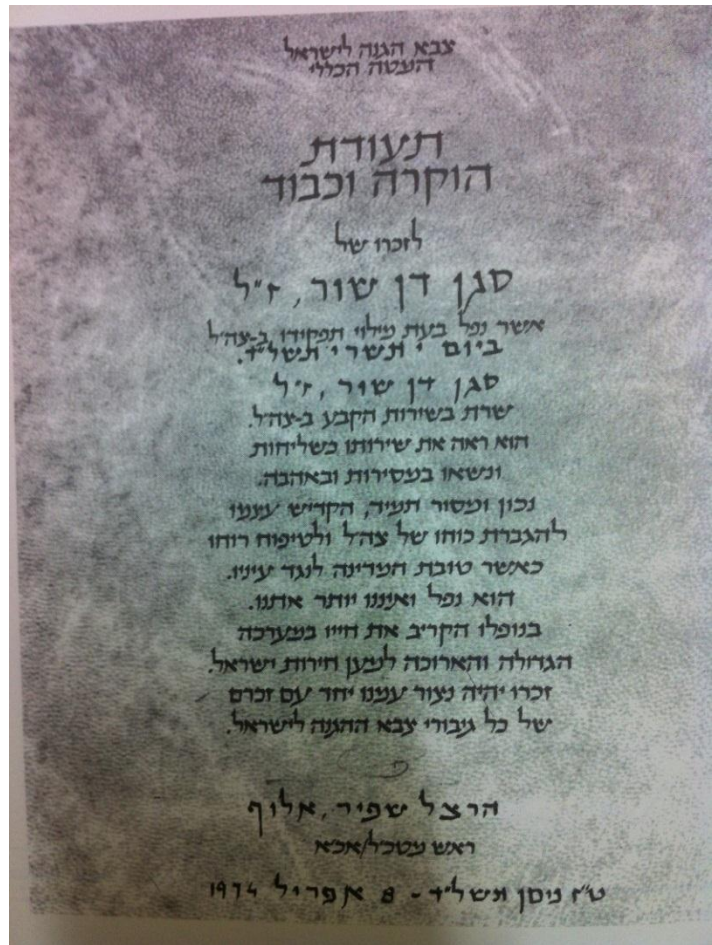 צבא הגנה לישראל
המטה הכללי
תעודת
הוקרה וכבוד
לזכרו של
סגן דן שור, ז"ל
אשר נפל בעת מילוי תפקידו ב-צה"ל
ביום י תשרי תשל"ד.
סגן דן שור, ז"ל
שרת בשירות הקבע ב-צה"ל.
הוא ראה את שירותו כשליחות
ונשאו במסירות ובאהבה.
נכון ומסור תמיד, הקדיש עצמו
להגברת כוחו של צה"ל ולטיפוח רוחו
כאשר טובת המדינה לנגד עיניו.
הוא נפל ואיננו יותר אתנו.
בנופלו הקריב את חייו במערכה
הגדולה והארוכה למען חירות ישראל.
זכרו יהיה נצור עמנו יחד עם זכרם
של כל גיבורי צבא ההגנה לישראל.
הרצל שפיר, אלוף
ראש מטכ"ל/אכ"א
ט"ז ניסן תשל"ד - 8 אפריל 1974